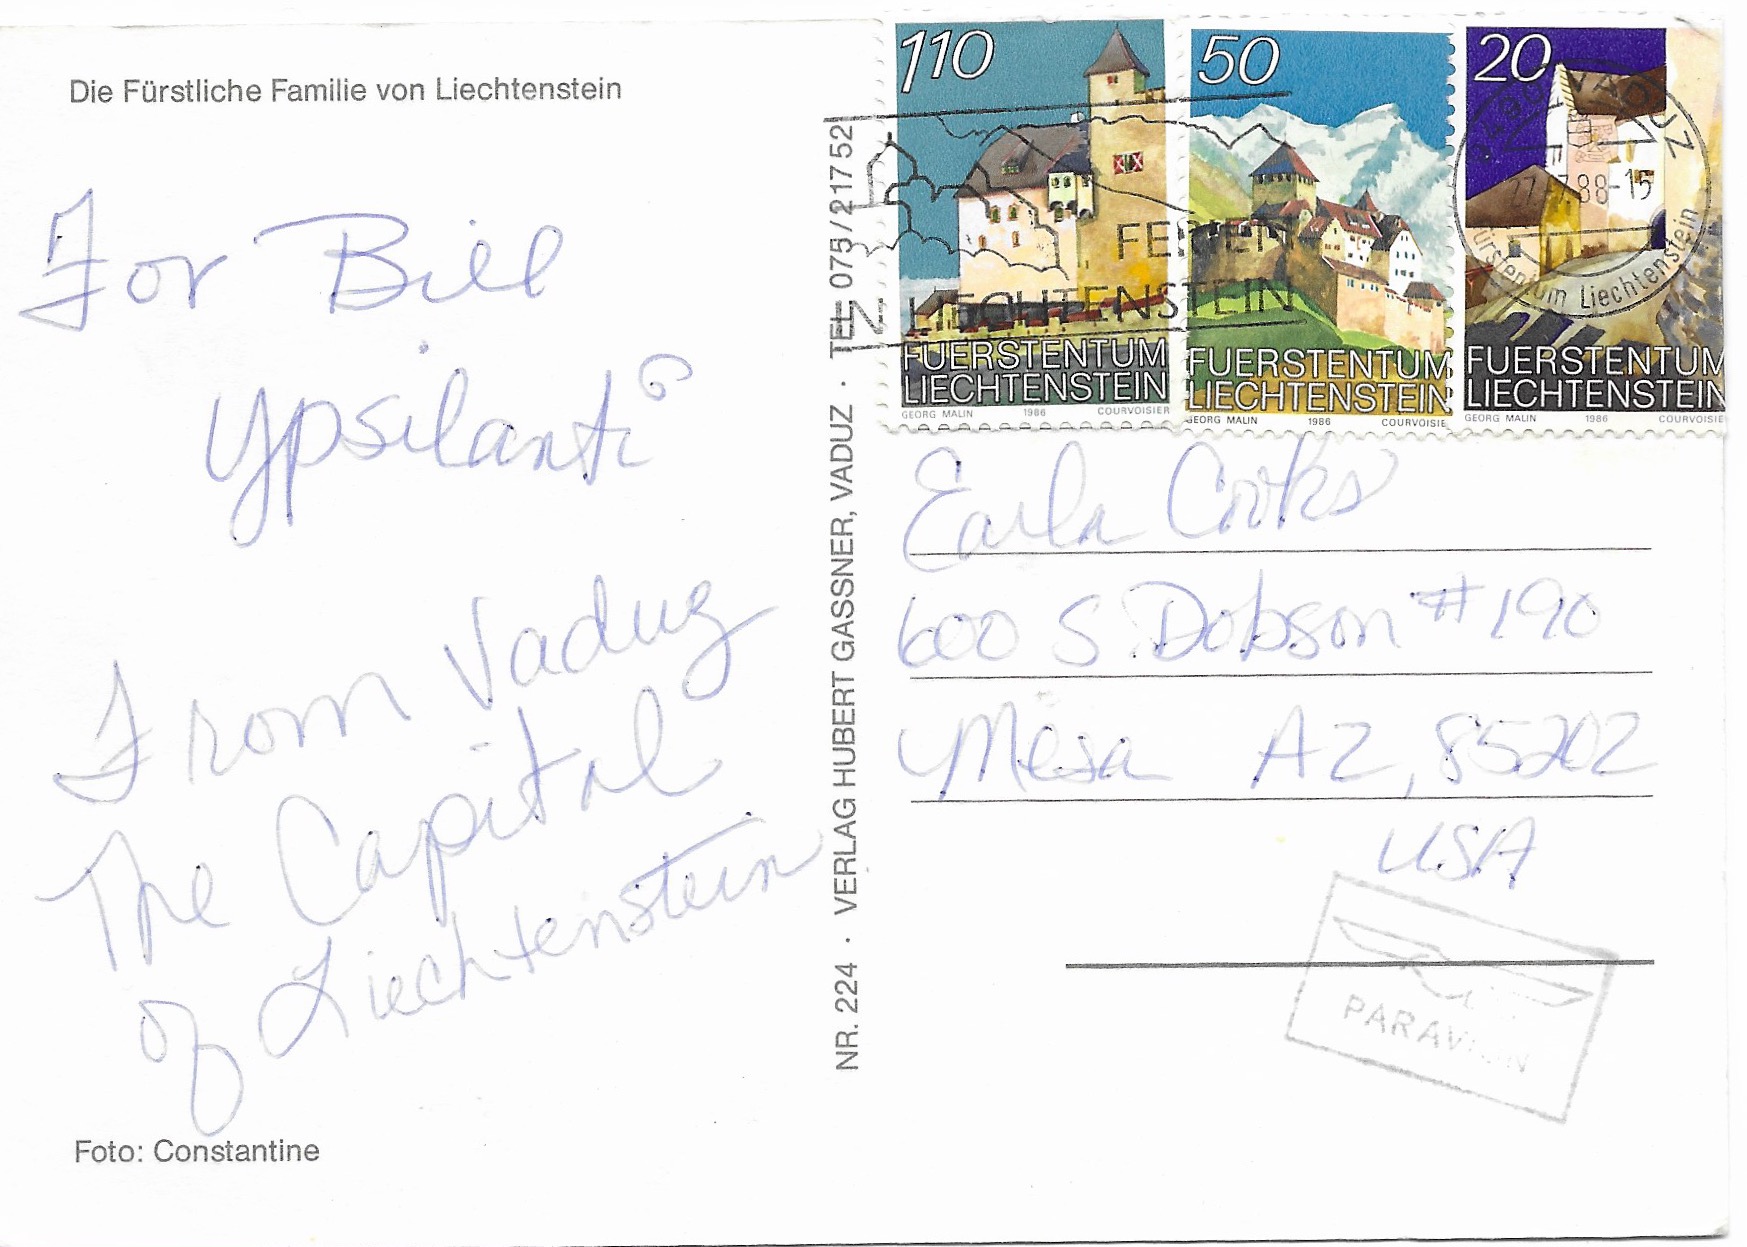 Die Fürstliche Familie von Liechtenstein
For Bill
Ypsilanti
From Vaduz
The Capital
of Liechtenstein
Foto: Constantine
NR. 224 · VERLAG HUBERT GASSNER, VADUZ · TEL. 075/21752
110
FUERSTENTUM
LIECHTENSTEIN
GEORG MALIN 1986 COURVOISIER
50
FUERSTENTUM
LIECHTENSTEIN
GEORG MALIN 1986 COURVOISIE
20
FUERSTENTUM
LIECHTENSTEIN
GEORG MALIN 1986 COURVOISIE
FERIEN
LIECHTENSTEIN
9490 VADUZ
88-15
Fürstentum Liechtenstein
Earla Cooks
600 S. Dobson #190
Mesa AZ, 85202
USA
PAR AVION